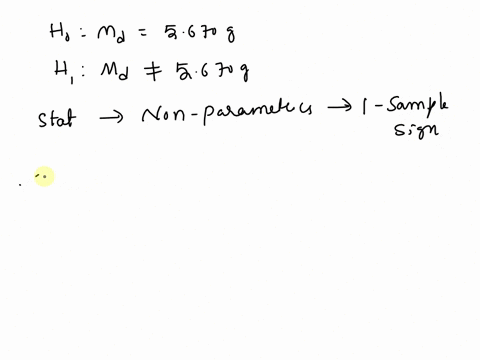 H₀ : Md = 5.670 g
H₁ : Md ≠ 5.670 g
Stat → Non-parametrics → 1-Sample
sign